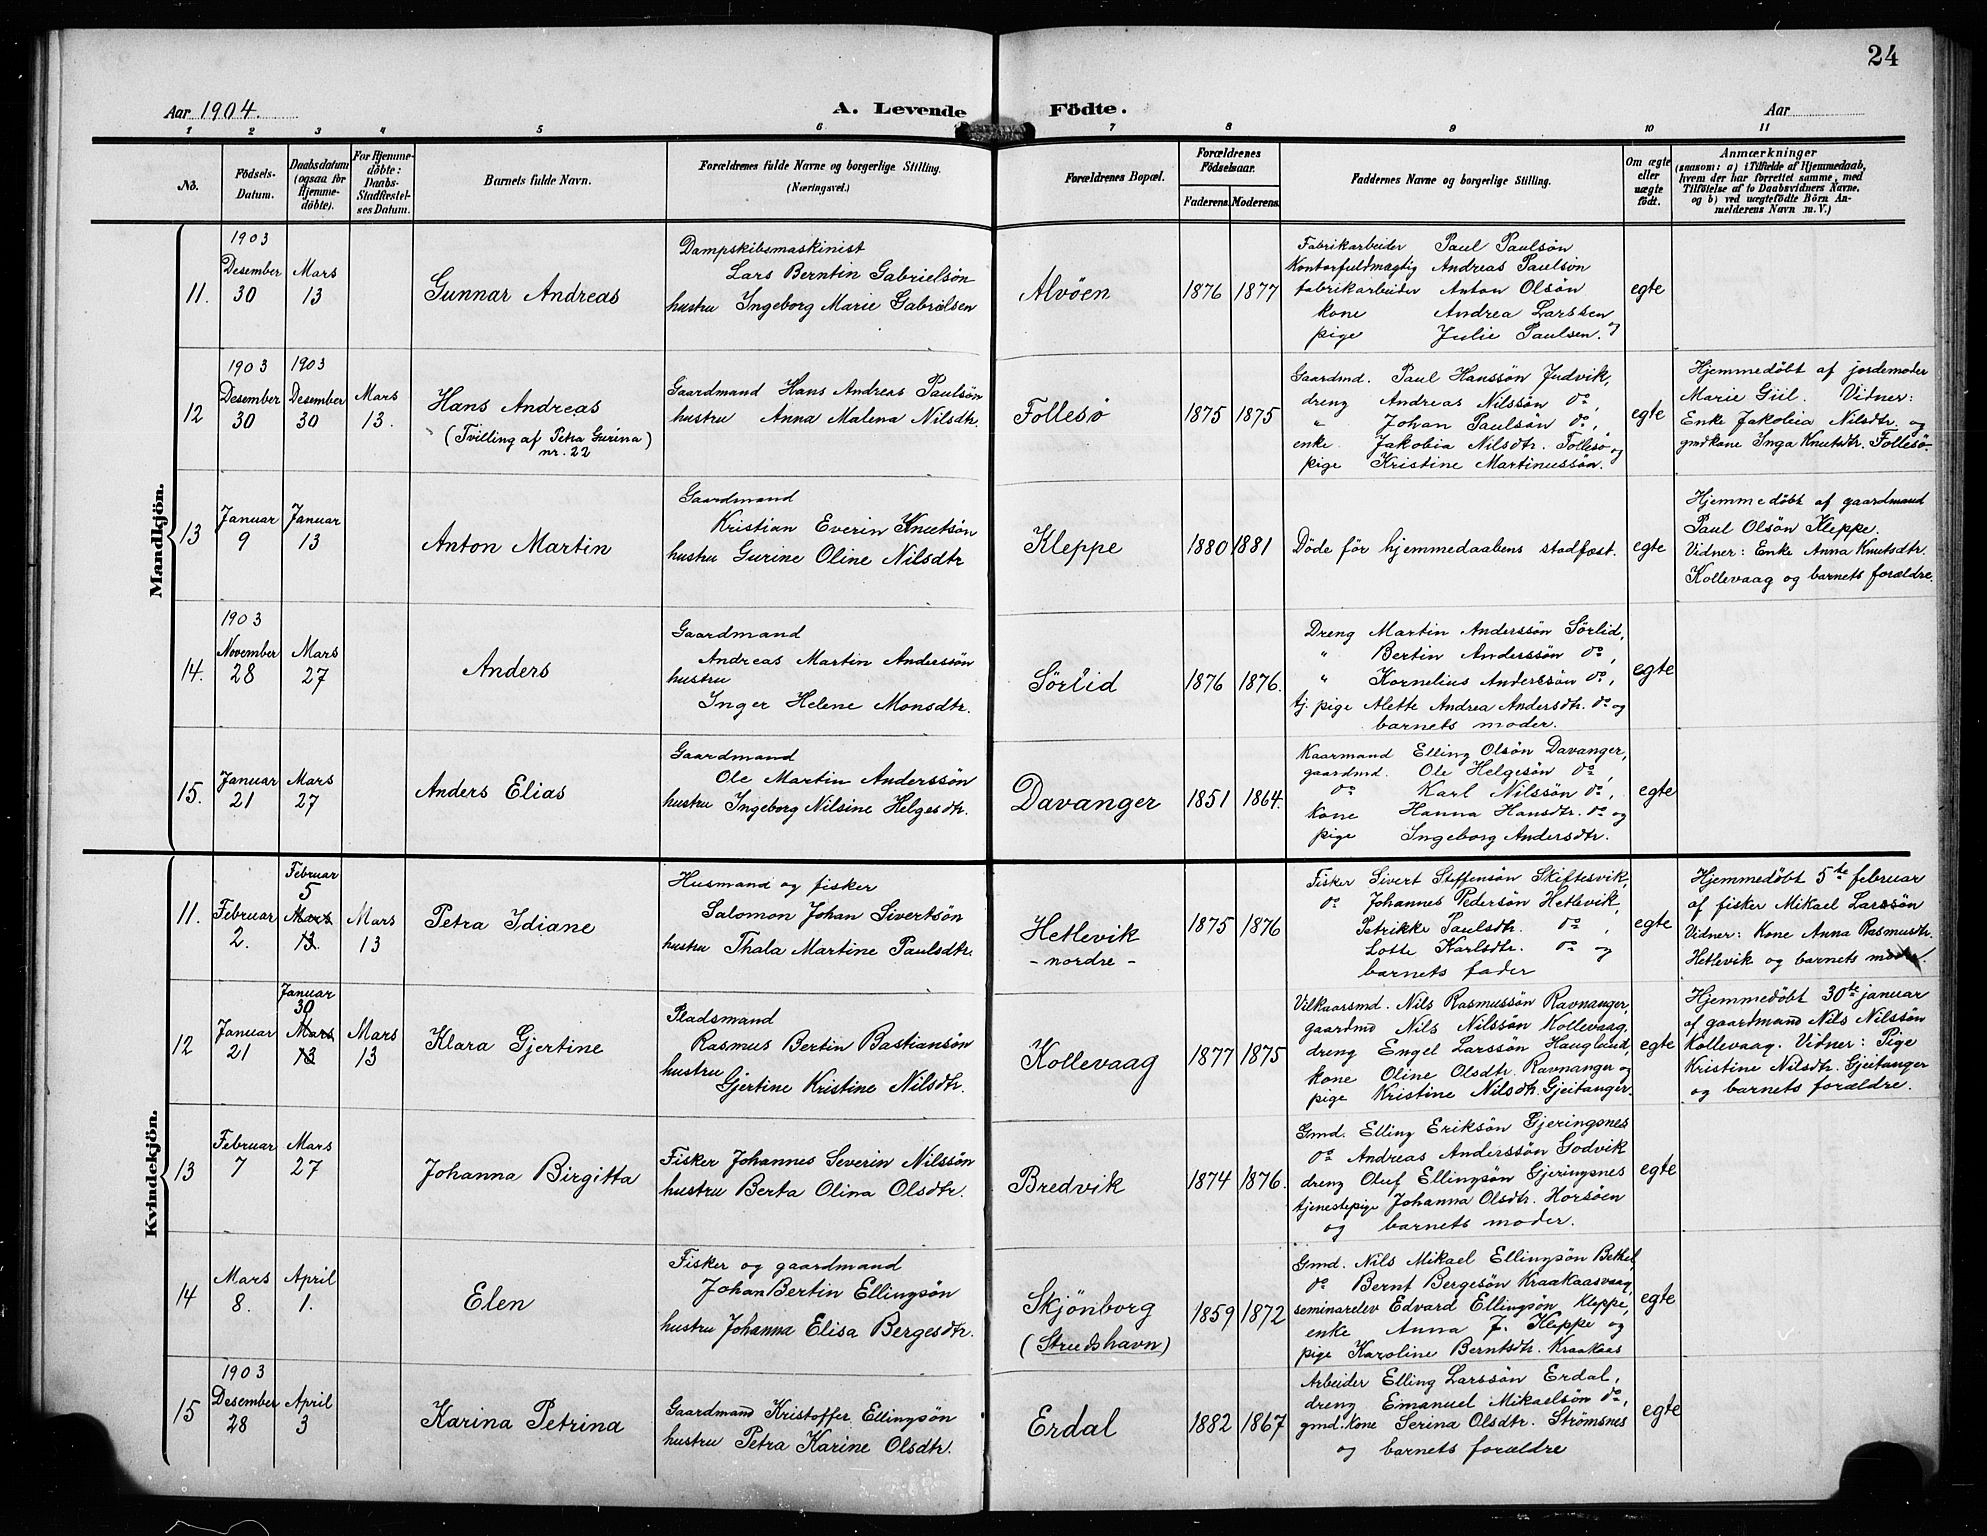 24
Aar 1904.
A. Levende Födte.
Aar
1 2 3 4 5 6 7 8 9 10 11
No.
Födsels-Datum.
Daabsdatum (ogsaa for Hjemme-döbte).
For Hjemme-döbte: Daabs-Stadfæstel-ses Datum.
Barnets fulde Navn.
Forældrenes fulde Navne og borgerlige Stilling. (Næringsvei.)
Forældrenes Bopæl.
Forældrenes Födselsaar.
Faderens. Moderens.
Faddernes Navne og borgerlige Stilling.
Om ægte eller uægte födt.
Anmærkninger
(saasom: a) i Tilfælde af Hjemmedaab, hvem der har forrettet samme, med Tilföielse af to Daabsvidners Navne, og b) ved uægtefödte Börn An-melderens Navn m. V.)
Mandkjön.
11.
1903
Desember
30
Mars
13
Gunnar Andreas
Dampskibsmaskinist
Lars Berntin Gabrielsön
hustru Ingeborg Marie Gabrielsen
Alvöen
1876 1877
Fabrikarbeider Paul Paulsön
Kontorfuldmægtig Andreas Paulsön
fabrikarbeider Anton Olsön
kone Andrea Larssen
pige Julie Paulsen. og
egte
12
1903
Desember
30
1903
Desember
30
Mars
13.
Hans Andreas
(Tvilling af Petra Gurina)
nr. 22
Gaardmand Hans Andreas Paulsön
hustru Anna Malena Nilsdtr.
Follesö
1875 1875
Gaardmd. Paul Hanssön Judvik,
dreng Andreas Nilssön do,
" Johan Paulsön do,
enke Jakobia Nilsdtr. Follesö og
pige Kristine Martinussön.
egte
Hjemmedöbt af jordemoder
Marie Giil. Vidner:
Enke Jakobia Nilsdtr. og
gmdkone Inga Knutsdtr. Follesö.
13
Januar
9
Januar
13
Anton Martin
Gaardmand
Kristian Everin Knutsön
hustru Gurine Oline Nilsdtr
Kleppe
1880 1881
Döde för hjemmedaabens stadfæst.
egte
Hjemmedöbt af gaardmand
Paul Olsön Kleppe.
Vidner: Enke Anna Knutsdtr.
Kollevaag og barnets forældre.
14.
1903
November
28
Mars
27
Anders
Gaardmand
Andreas Martin Anderssön
hustru
Inger Helene Monsdtr.
Sörlid
1876 1876.
Dreng Martin Anderssön Sörlid,
" Bertin Anderssön do,
" Kornelius Anderssön do,
tj. pige Alette Andrea Andersdtr. do og
barnets moder.
egte
15.
Januar
21
Mars
27
Anders Elias
Gaardmand
Ole Martin Anderssön
hustru Ingeborg Nilsine Helgesdtr.
Davanger
1851 1864.
Kaarmand Elling Olsön Davanger,
gaardmd. Ole Helgesön do,
do Karl Nilssön do,
kone Hanna Hansdtr. do og
pige Ingeborg Andersdtr.
egte
Kvindekjön.
11.
Februar
2.
Februar
5
Mars
13
Mars
13
Petra Idiane
Husmand og fisker
Salomon Johan Sivertsön
hustru Thala Martine Paulsdtr.
Hetlevik
- nordre -
1875 1876
Fisker Sivert Steffensön Skiftesvik,
do Johannes Pedersön Hetlevik,
Patrikke Paulsdtr. do,
Lotte Karlsdtr. do og
barnets fader
egte
Hjemmedöbt 5te februar
af fisker Mikael Larssön
Vidner: Kone Anna Rasmusdtr.
Hetlevik og barnets moder.
12
Januar
21
Januar
30
Mars
13
Mars
13
Klara Gjertine
Pladsmand
Rasmus Bertin Bastiansön
hustru
Gjertine Kristine Nilsdtr.
Kollevaag
1877 1875
Vilkaarsmd. Nils Rasmussön Ravnanger,
gaardmd Nils Nilssön Kollevaag,
dreng Engel Larssön Hauglund,
kone Oline Olsdtr. Ravnanger og
pige Kristine Nilsdtr. Gjeitanger.
egte
Hjemmedöbt 30te januar
af gaardmand Nils Nilssön
Kollevaag. Vidner: Pige
Kristine Nilsdtr. Gjeitanger
og barnets forældre.
13
Februar
7
Mars
27
Johanna Birgitta
Fisker Johannes Severin Nilssön
hustru Berta Olina Olsdtr.
Bredvik
1874 1876.
Gmd. Elling Eriksön Gjeringsnes
do Andreas Anderssön Godvik
dreng Oluf Ellingsön Gjeringsnes
tjenestepige Johanna Olsdtr. Horsöen
og barnets moder.
egte
14
Mars
8.
April
1.
Elen
Fisker og gaardmand
Johan Bertin Ellingsön
hustru Johanna Elisa Bergesdtr.
Skjönborg
(Strudshavn)
1859 1872
Gmd. Nils Mikael Ellingsön Bethel,
do Bernt Bergesön Kraakaasvaag,
seminarelev Edvard Ellingsön Kleppe,
enke Anna J. Kleppe og
pige Karoline Berntsdtr. Kraakaas
egte
15
1903
Desember
28
April
3
Karina Petrina
Gaardmand Kristoffer Ellingsön
hustru Petra Karine Olsdtr.
Erdal
1882 1867
Arbeider Elling Larssön Erdal,
dreng Emanuel Mikaelsön do,
gmd.kone Serina Olsdtr. Strömsnes
og barnets forældre
egte